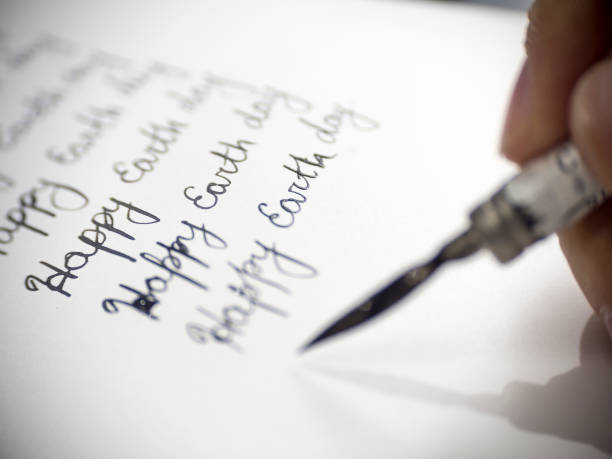 day
Earth day
appy Earth day
Happy Earth day
Happy Earth day
Happy Earth day